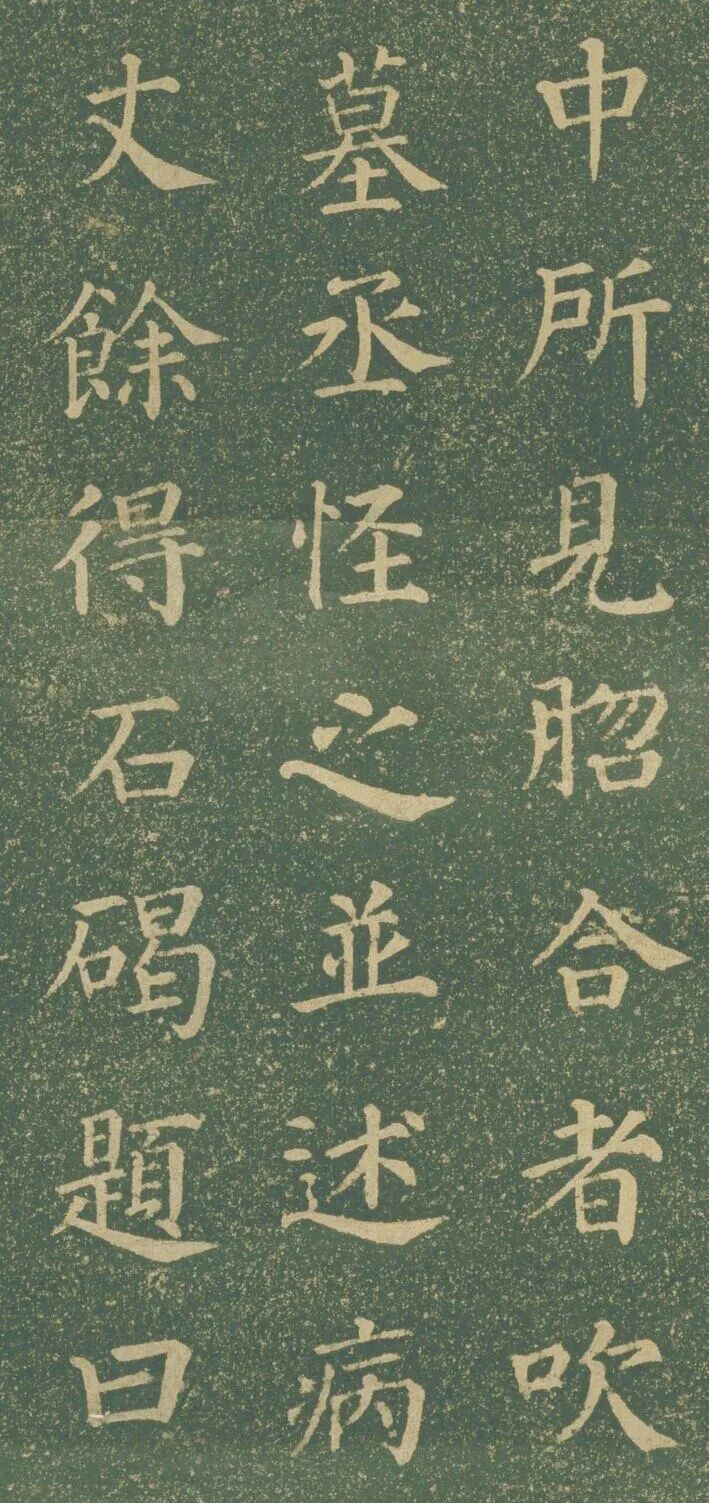 中所見脗合者吹
墓丞怪之並述病
丈餘得石碣題曰